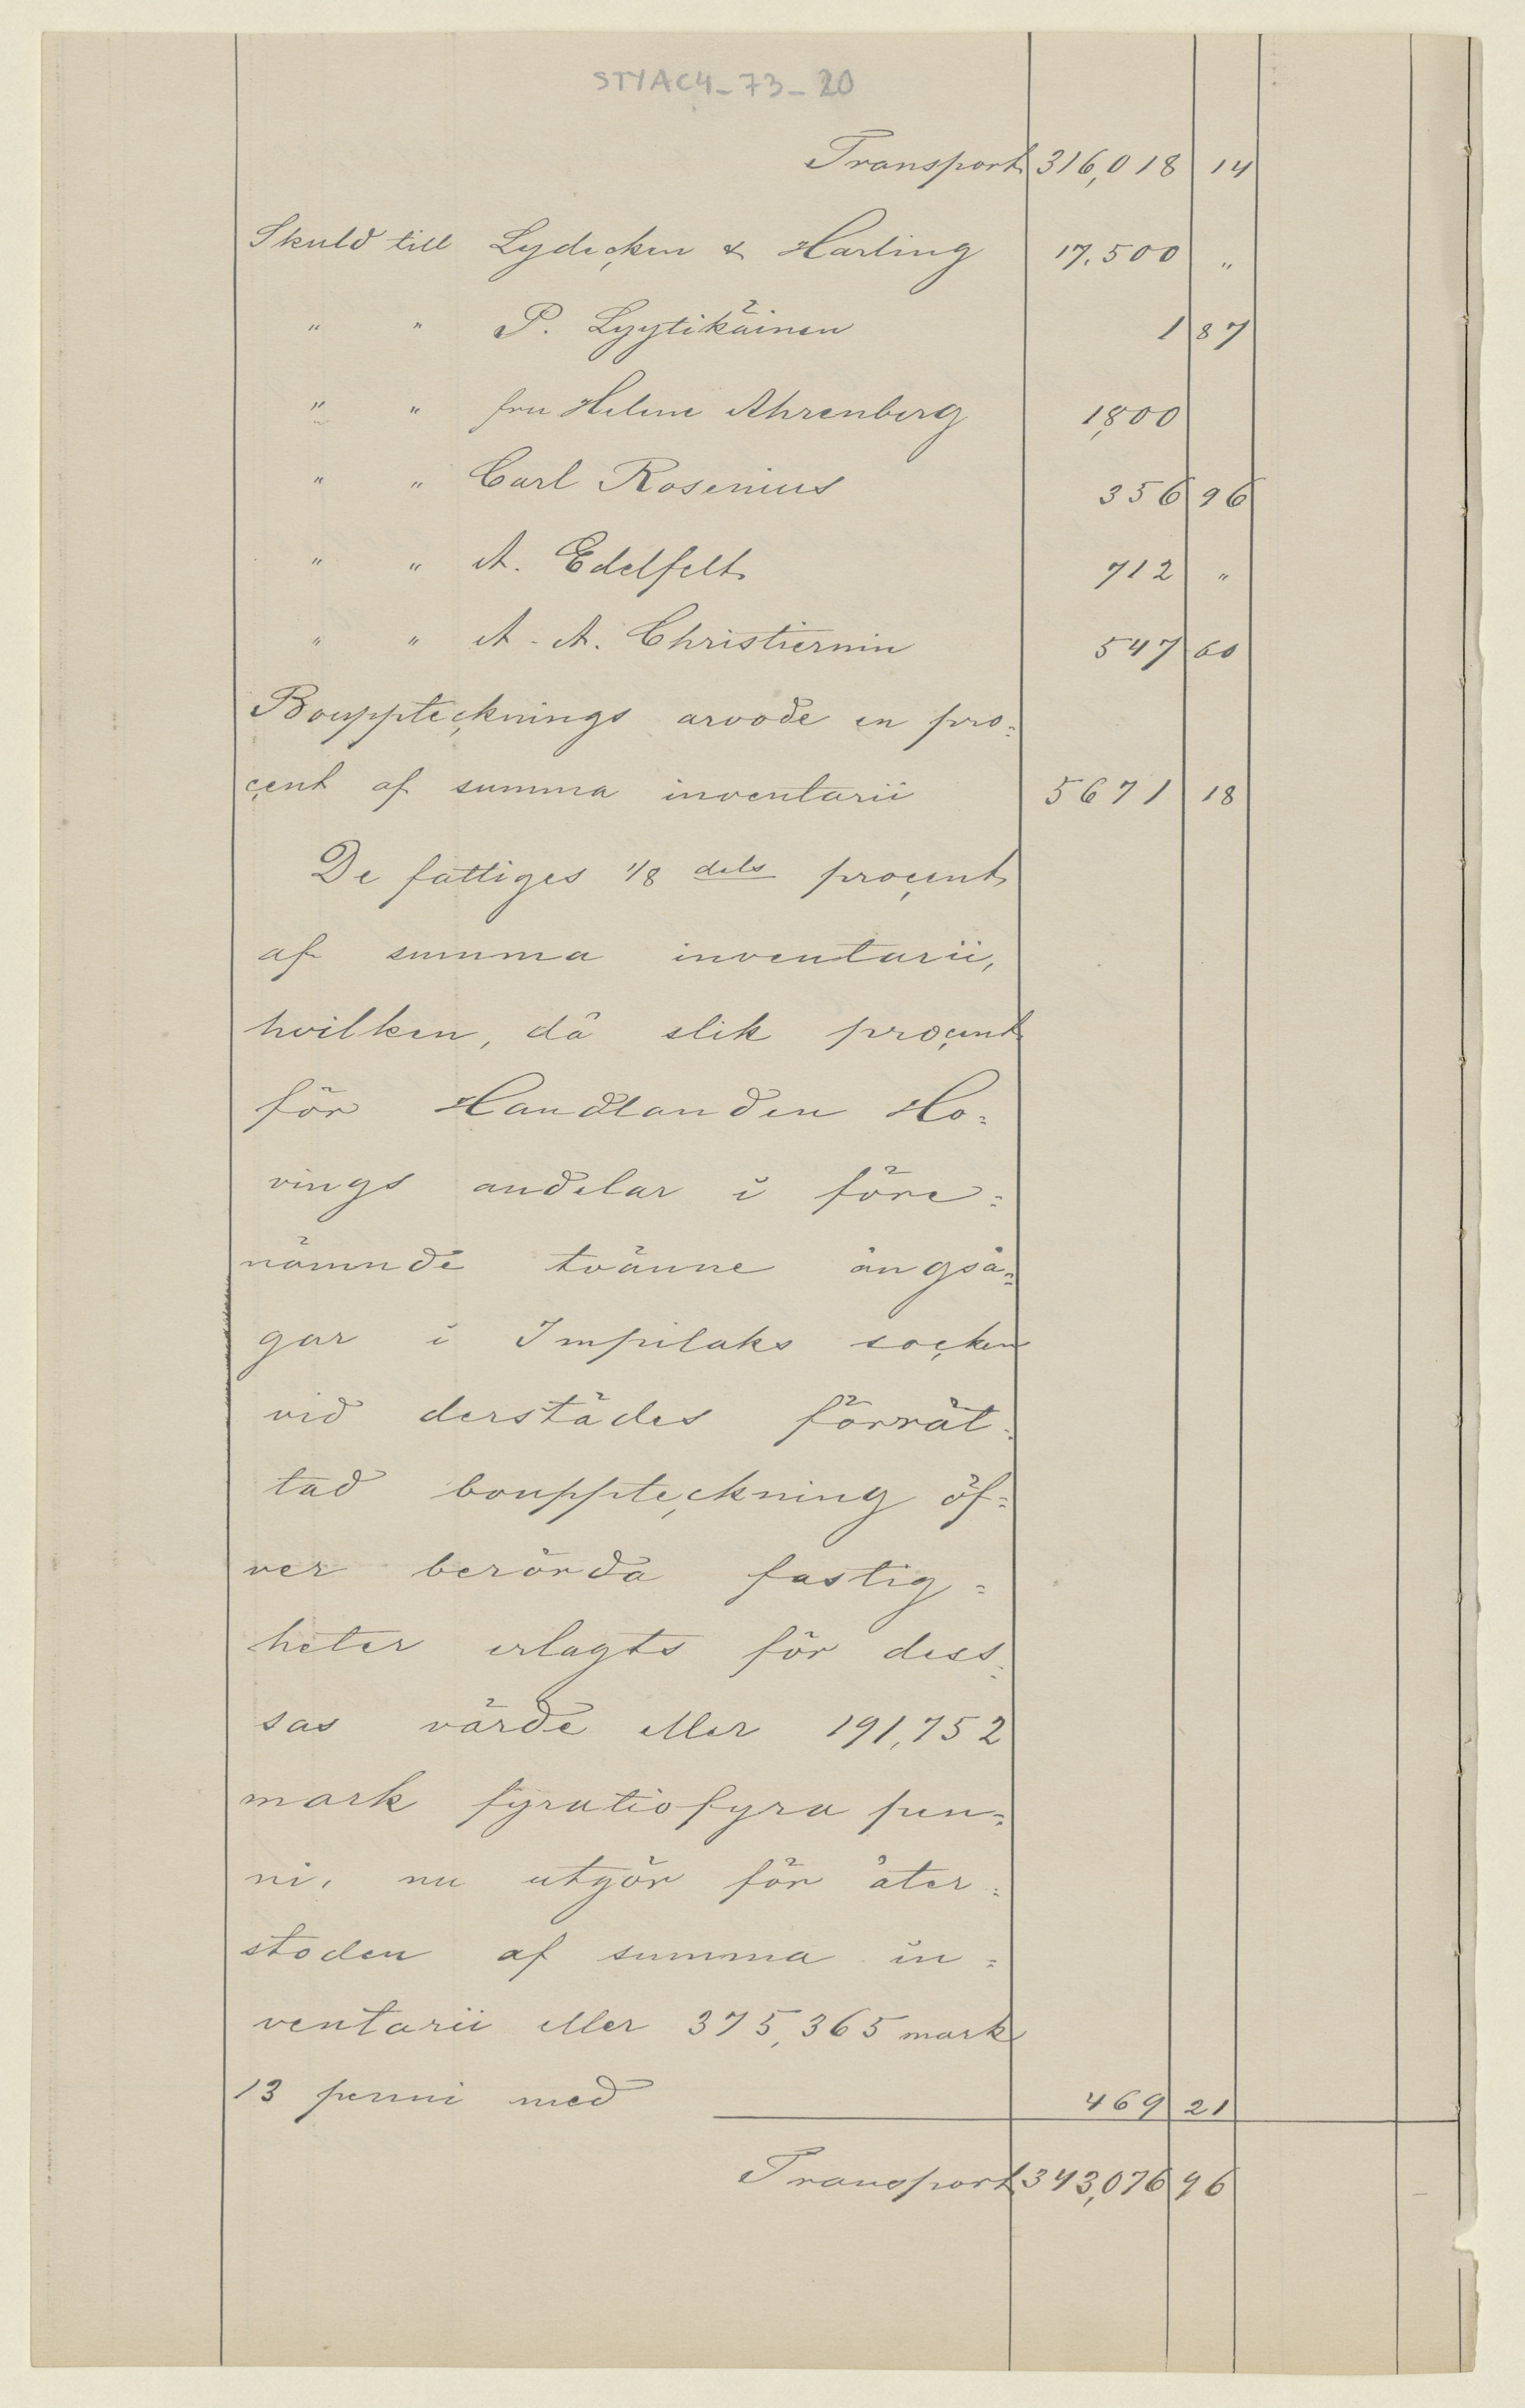 STYAC4-73-20
Transport 316,018 14
Skuld till Lydecken & Harling 17.500 "
" " P. Lyytikäinen 1 87
" " fru Helene Ahrenberg 1,800
" " Carl Rosenius 356 96
" " A. Edelfelt 712 "
" " A. A. Christiernin 547 60
Boupptecknings arvode en pro=
cent af summa inventarii 5671 18
De fattiges 1/8 dels procent
af summa inventarii,
hvilken, då slik procent
för Handlanden Ho=
vings andelar i före=
nämnde tvänne ångså=
gar i Impilaks socken
vid derstädes förrät=
tad bouppteckning öf=
ver berörda fastig=
heter erlagts för dess=
sas värde eller 191,752
mark fyratiofyra pen=
ni, nu utgör för åter=
stoden af summa in=
ventarii eller 375,365 mark
13 penni med 469 21
Transport 343,076 96